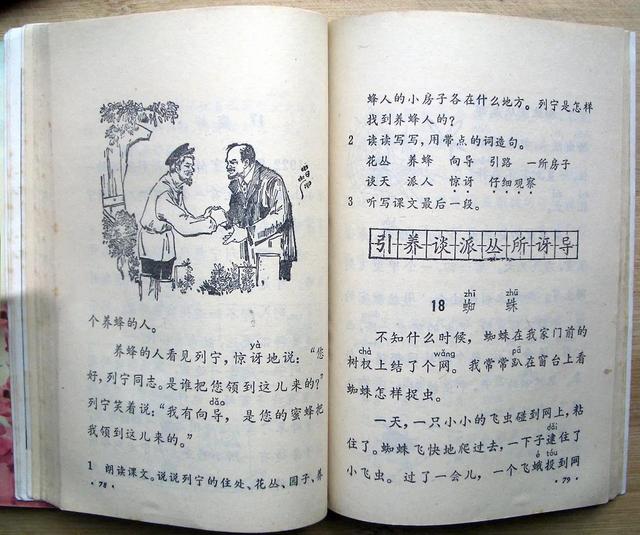 个养蜂的人。
yà
养蜂的人看见列宁，惊讶地说：“您
好，列宁同志。是谁把您领到这儿来的？”
dǎo
列宁笑着说：“我有向导，是您的蜜蜂把
我领到这儿来的。”
1 朗读课文。说说列宁的住处、花丛、园子、养
·78·
蜂人的小房子各在什么地方。列宁是怎样
找到养蜂人的？
2 读读写写，用带点的词造句。
花丛 养蜂 向导 引路 一所房子
谈天 派人 惊讶 仔细观察
3 听写课文最后一段。
引养谈派丛所讶导
zhī zhū
18 蜘 蛛
不知什么时候，蜘蛛在我家门前的
chà wǎng pā
树杈上结了个网。我常常趴在窗台上看
蜘蛛怎样捉虫。
一天，一只小小的飞虫碰到网上，粘
dǎi
住了。蜘蛛飞快地爬过去，一下子逮住了
é tóu
小飞虫。过了一会儿，一个飞蛾投到网
·79·